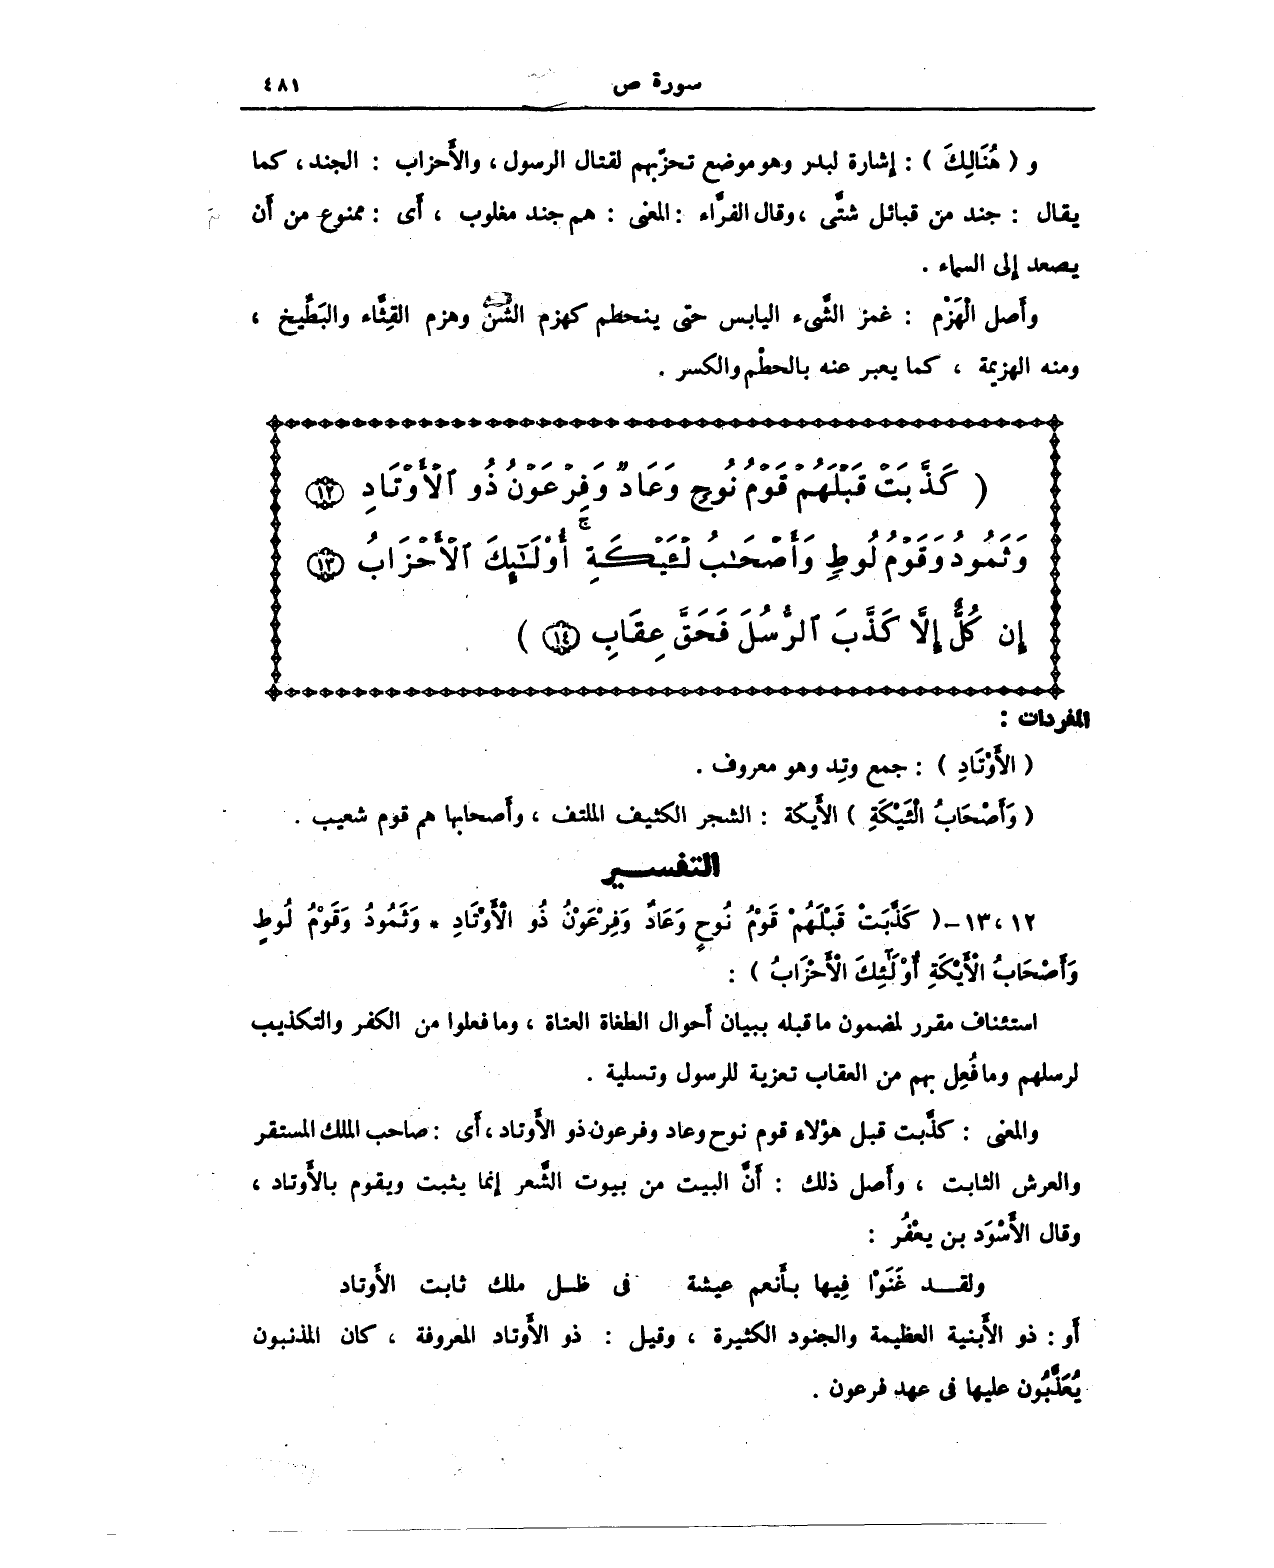 سورة ص ٤٨١
و ( هُنَالِكَ ) : إشارة لبدر وهو موضع تحزّبهم لقتال الرسول ، والأَحزاب : الجند ، كما
يقال : جند من قبائل شتَّى ، وقال الفرَّاء : المعنى : هم جند مغلوب ، أَى : ممنوع من أَن
يصعد إلى السماء .
وأَصل الْهَزْم : غمز الشَّىء اليابس حتى ينحطم كهزم الشَّنّ وهزم القِثَّاء والبَطِّيخ ،
ومنه الهزيمة ، كما يعبر عنه بالحطْم والكسر .
( كَذَّبَتْ قَبْلَهُمْ قَوْمُ نُوحٍ وَعَادٌ وَفِرْعَوْنُ ذُو ٱلْأَوْتَادِ ١٢
وَثَمُودُ وَقَوْمُ لُوطٍ وَأَصْحَٰبُ لْـَٔيْكَةِ ۚ أُوْلَٰٓئِكَ ٱلْأَحْزَابُ ١٣
إِن كُلٌّ إِلَّا كَذَّبَ ٱلرُّسُلَ فَحَقَّ عِقَابِ ١٤ )
المفردات :
( الأَوْتَادِ ) : جمع وتِد وهو معروف .
( وَأَصْحَابُ الْئَيْكَةِ ) الأَيكة : الشجر الكثيف الملتف ، وأَصحابها هم قوم شعيب .
التفسير
١٢ ، ١٣ – ( كَذَّبَتْ قَبْلَهُمْ قَوْمُ نُوحٍ وَعَادٌ وَفِرْعَوْنُ ذُو الْأَوْتَادِ * وَثَمُودُ وَقَوْمُ لُوطٍ
وَأَصْحَابُ الْأَيْكَةِ أُوْلَٰٓئِكَ الْأَحْزَابُ ) :
استئناف مقرر لمضمون ما قبله ببيان أحوال الطغاة العتاة ، وما فعلوا من الكفر والتكذيب
لرسلهم وما فُعِل بهم من العقاب تعزية للرسول وتسلية .
والمعنى : كذَّبت قبل هؤلاء قوم نوح وعاد وفرعون ذو الأَوتاد ، أَى : صاحب الملك المستقر
والعرش الثابت ، وأَصل ذلك : أَنَّ البيت من بيوت الشَّعر إنما يثبت ويقوم بالأَوتاد ،
وقال الأَسْوَد بن يعْفُر :
ولقـد غَنَوْا فِيها بأَنعم عيشة فى ظـل ملك ثابت الأَوتاد
أَو : ذو الأَبنية العظيمة والجنود الكثيرة ، وقيل : ذو الأَوتاد المعروفة ، كان المذنبون
يُعَذَّبُون عليها فى عهد فرعون .